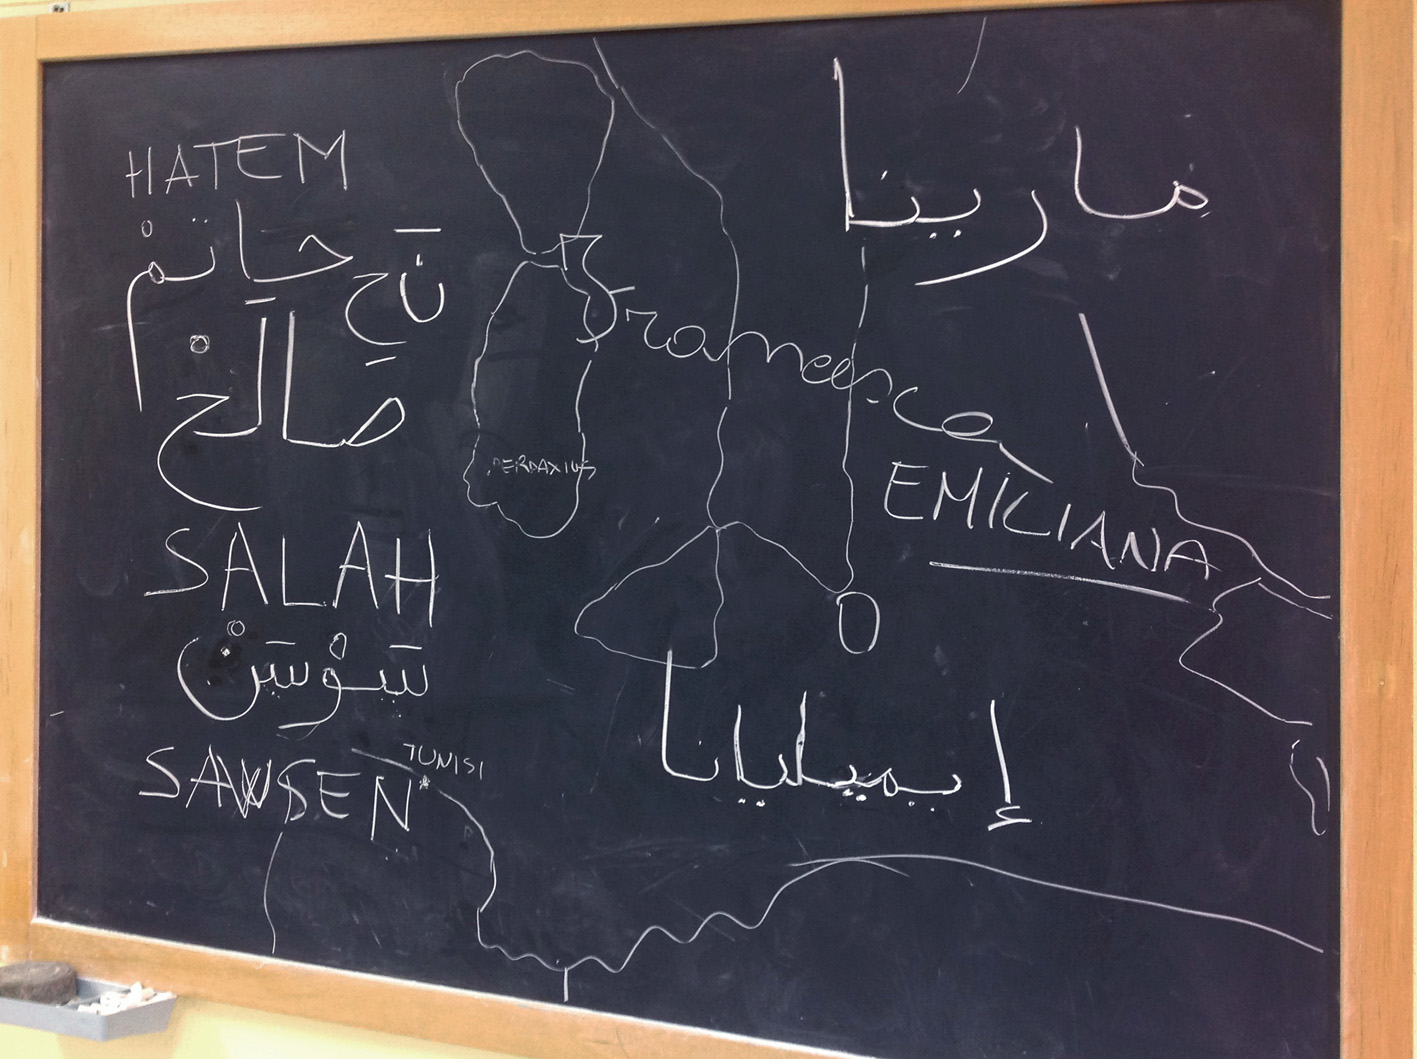 HATEM
حاتمْ
صالحْ
SALAH
سَوْسَنْ
SAWSEN
TUNISI
PERDAXIUS
Francesca
مارينا
EMILIANA
إيميليانا